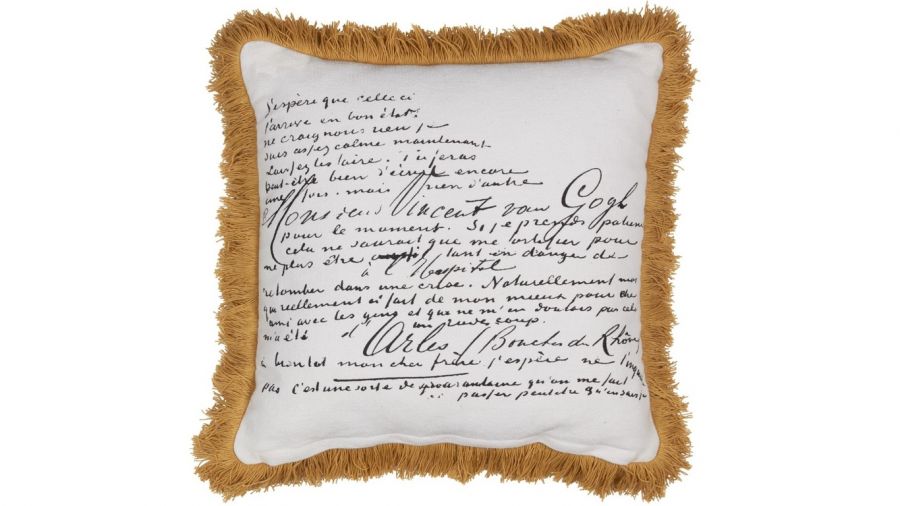 j'espère que celle ci
t'arrive en bon état.
ne craignons rien, je
suis assez calme maintenant
Laissez les faire. Tu feras
peut-être bien d'écrire encore
une fois. mais rien d'autre
Monsieur Vincent van Gogh
pour le moment. Si je prends patience
cela ne saurait que me fortifier pour
ne plus être tant en danger de
à l'Hospital
retomber dans une crise. Naturellement moi
qui réellement ai fait de mon mieux pour être
ami avec les gens et que ne m'en doutais pas cela
m'a été un rude coup.
d'Arles (Bouches du Rhône
à bientot mon cher frère j'espère ne
pas c'est une sorte de quarantaine qu'on me fait
passer peutetre